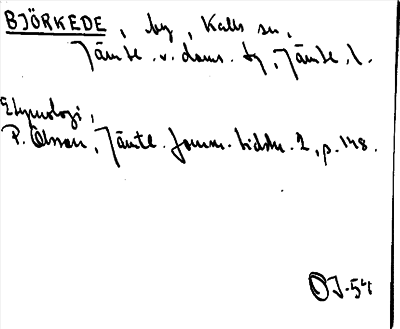 BJÖRKEDE, by, Kalls sn,
Jämtl. v. doms. tg, Jämtl. l.
Etymologi,
P. Olsson, Jämtl. fornm. tidskr. 2, p. 148.
OJ-54